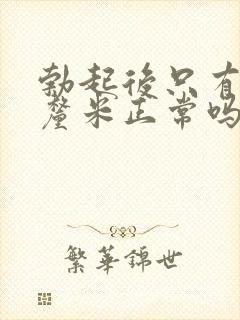 勃起後只有
釐米正常吗
繁華錦世